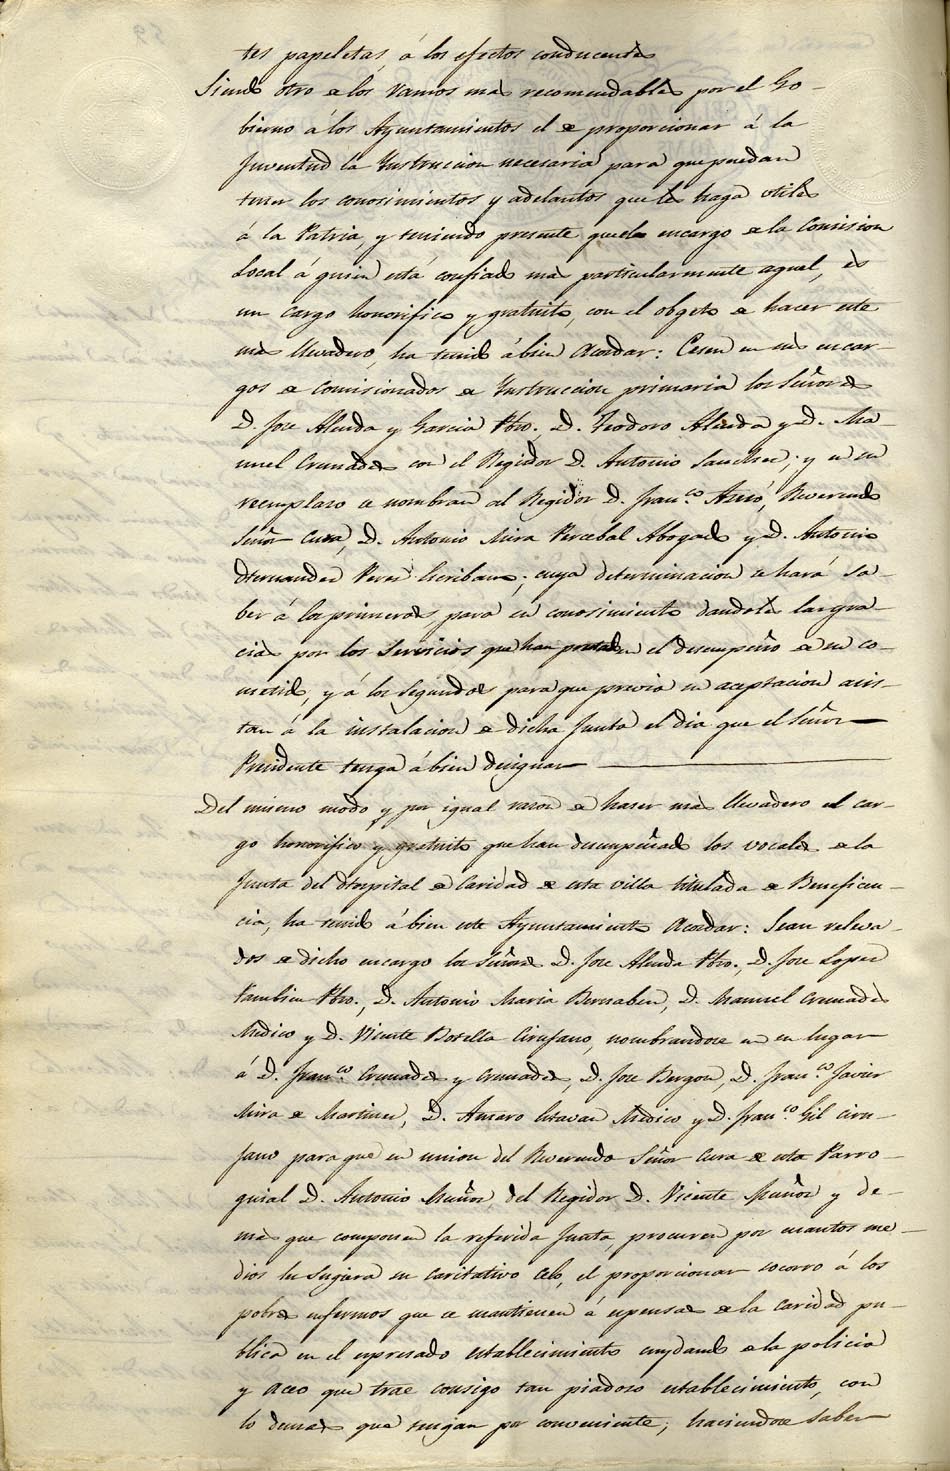 tes papeletas, á los efectos conducentes
Siendo otro de los ramos mas recomendables por el Go-
bierno á los Ayuntamientos el de proporcionar á la
juventud la Instruccion necesaria para que puedan
tener los conosimientos y adelantos que les haga utiles
á la Patria, y teniendo presente que el encargo de la Comision
Local á quien está confiado mas particularmente aquel, és
un cargo honorifico y gratuito, con el objeto de hacer este
mas llevadero, ha tenido ábien Acordar: Cesen en sus encar-
gos de Comisionados de Instruccion primaria los Señores
D. Jose Alenda y Garcia Pbro., D. Teodoro Alenda y D. Ma-
nuel Cremades con el Regidor D. Antonio Sanchez; y en su
reemplazo se nombran al Regidor D. Fran.co Azñó, Reverendo
Señor Cura, D. Antonio Mira Percebal Abogado y D. Antonio
Hernandez Perez Escribano; cuya determinacion se hará sa-
ber á los primeros para su conosimiento dandoles las gra-
cias por los Servicios que han prestado en el desempeño de su co-
metido, y á los Segundos para que previa su aceptacion asis-
tan á la instalacion de dicha Junta el dia que el Señor
Presidente tenga ábien designar
Del mismo modo y por igual razon de haser mas llevadero el car-
go honorifico y gratuito que han desempeñado los vocales de la
Junta del Hospital de Caridad de esta villa titulada de Beneficen-
cia, ha tenido ábien este Ayuntamiento Acordar: Sean releva-
dos de dicho encargo los Señores D. Jose Alenda Pbro., D. Jose Lopez
tambien Pbro., D. Antonio Maria Bernabeu, D. Manuel Cremades
Medico y D. Vicente Botella Cirujano, nombrandose en su lugar
á D. Fran.co Cremades y Cremades, D. Jose Bergon, D. Fran.co Javier
Mira de Martinez, D. Amaro Estavan Medico y D. Fran.co Gil ciru-
jano para que en union del Reverendo Señor Cura de esta Parro-
quial D. Antonio Muñoz, del Regidor D. Vicente Muñoz y de-
mas que componen la referida Junta, procuren por cuantos me-
dios les Sugiera su caritativo celo, el proporcionar socorro á los
pobres enfermos que se mantienen á espensas de la caridad pu-
blica en el espresado establecimiento cuydando de la policia
y aceo que trae consigo tan piadoso establecimiento, con
lo demas que tengan por conveniente; haciendose saber